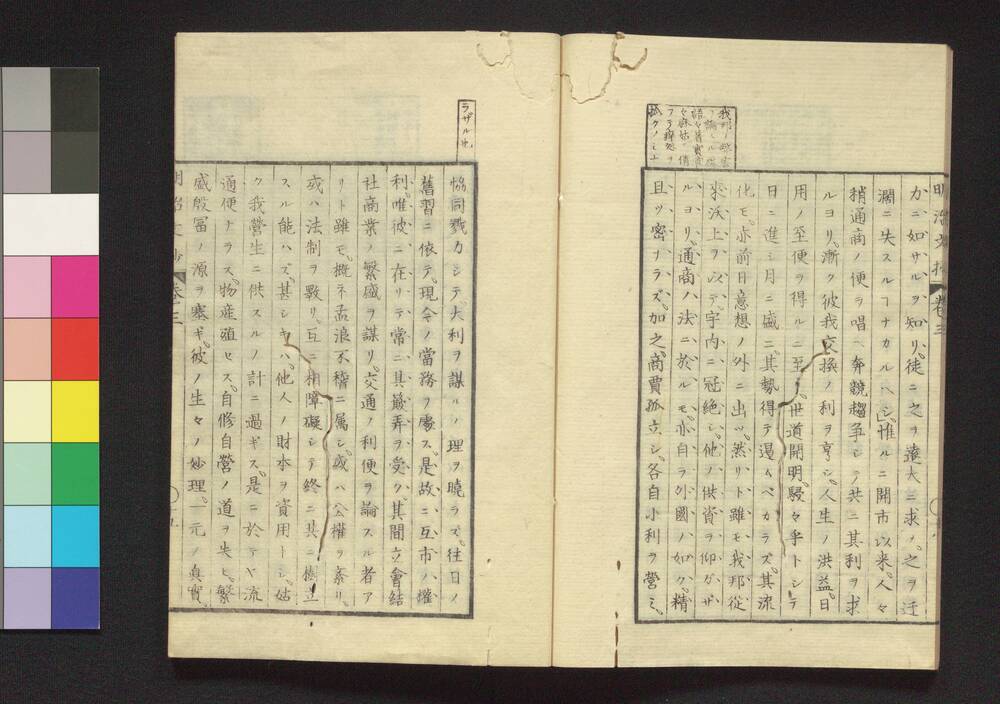 明治文抄 卷三
カニ如サルヲ知リ。徒ニ之ヲ遠大ニ求メ。之ヲ迂
濶ニ失スルヿナカルヘシ」惟ルニ開市以來。人々
稍通商ノ便ヲ唱ヘ奔競趨爭シテ共ニ其利ヲ求
ルヨリ。漸ク彼我交換ノ利ヲ亨シ。人生ノ洪益日
用ノ至便ヲ得ルニ至ル。世道開明。駸々乎トシテ
日ニ進ミ月ニ盛ニ。其勢得テ遏ムベカラズ。其流
化モ亦前日意想ノ外ニ出ツ。然リト雖モ我邦從
來沃土ヲ以テ宇内ニ冠絶シ。他ノ供資ヲ仰ガザ
ルヨリ。通商ノ法ニ於ルモ。亦自ラ外國ノ如ク。精
且ツ密ナラズ。加之。商賈孤立シ。各自小利ヲ營ミ。
ラザル也
協同戮力シテ。大利ヲ謀ルノ理ヲ曉ラズ。往日ノ
舊習ニ依テ。現今ノ當務ヲ廢ス。是故ニ互市ノ權
利。唯彼ニ在リテ常ニ其簸弄ヲ受ク。其間立會結
社商業ノ繁盛ヲ謀リ。交通ノ利便ヲ論スル者ア
リト雖モ。概ネ孟浪不稽ニ属シ。或ハ公權ヲ紊リ。
或ハ法制ヲ斁リ。互ニ相障礙シテ終ニ共ニ樹立
スル能ハズ。甚シキハ。他人ノ財本ヲ資用トシ。姑
ク我營生ニ供スルノ計ニ過ギス。是ニ於テヤ流
通便ナラス。物産殖セス。自修自營ノ道ヲ失ヒ。繁
盛殷冨ノ源ヲ塞ギ。彼ノ生々ノ妙理。一元ノ真實。
明治文抄 卷三